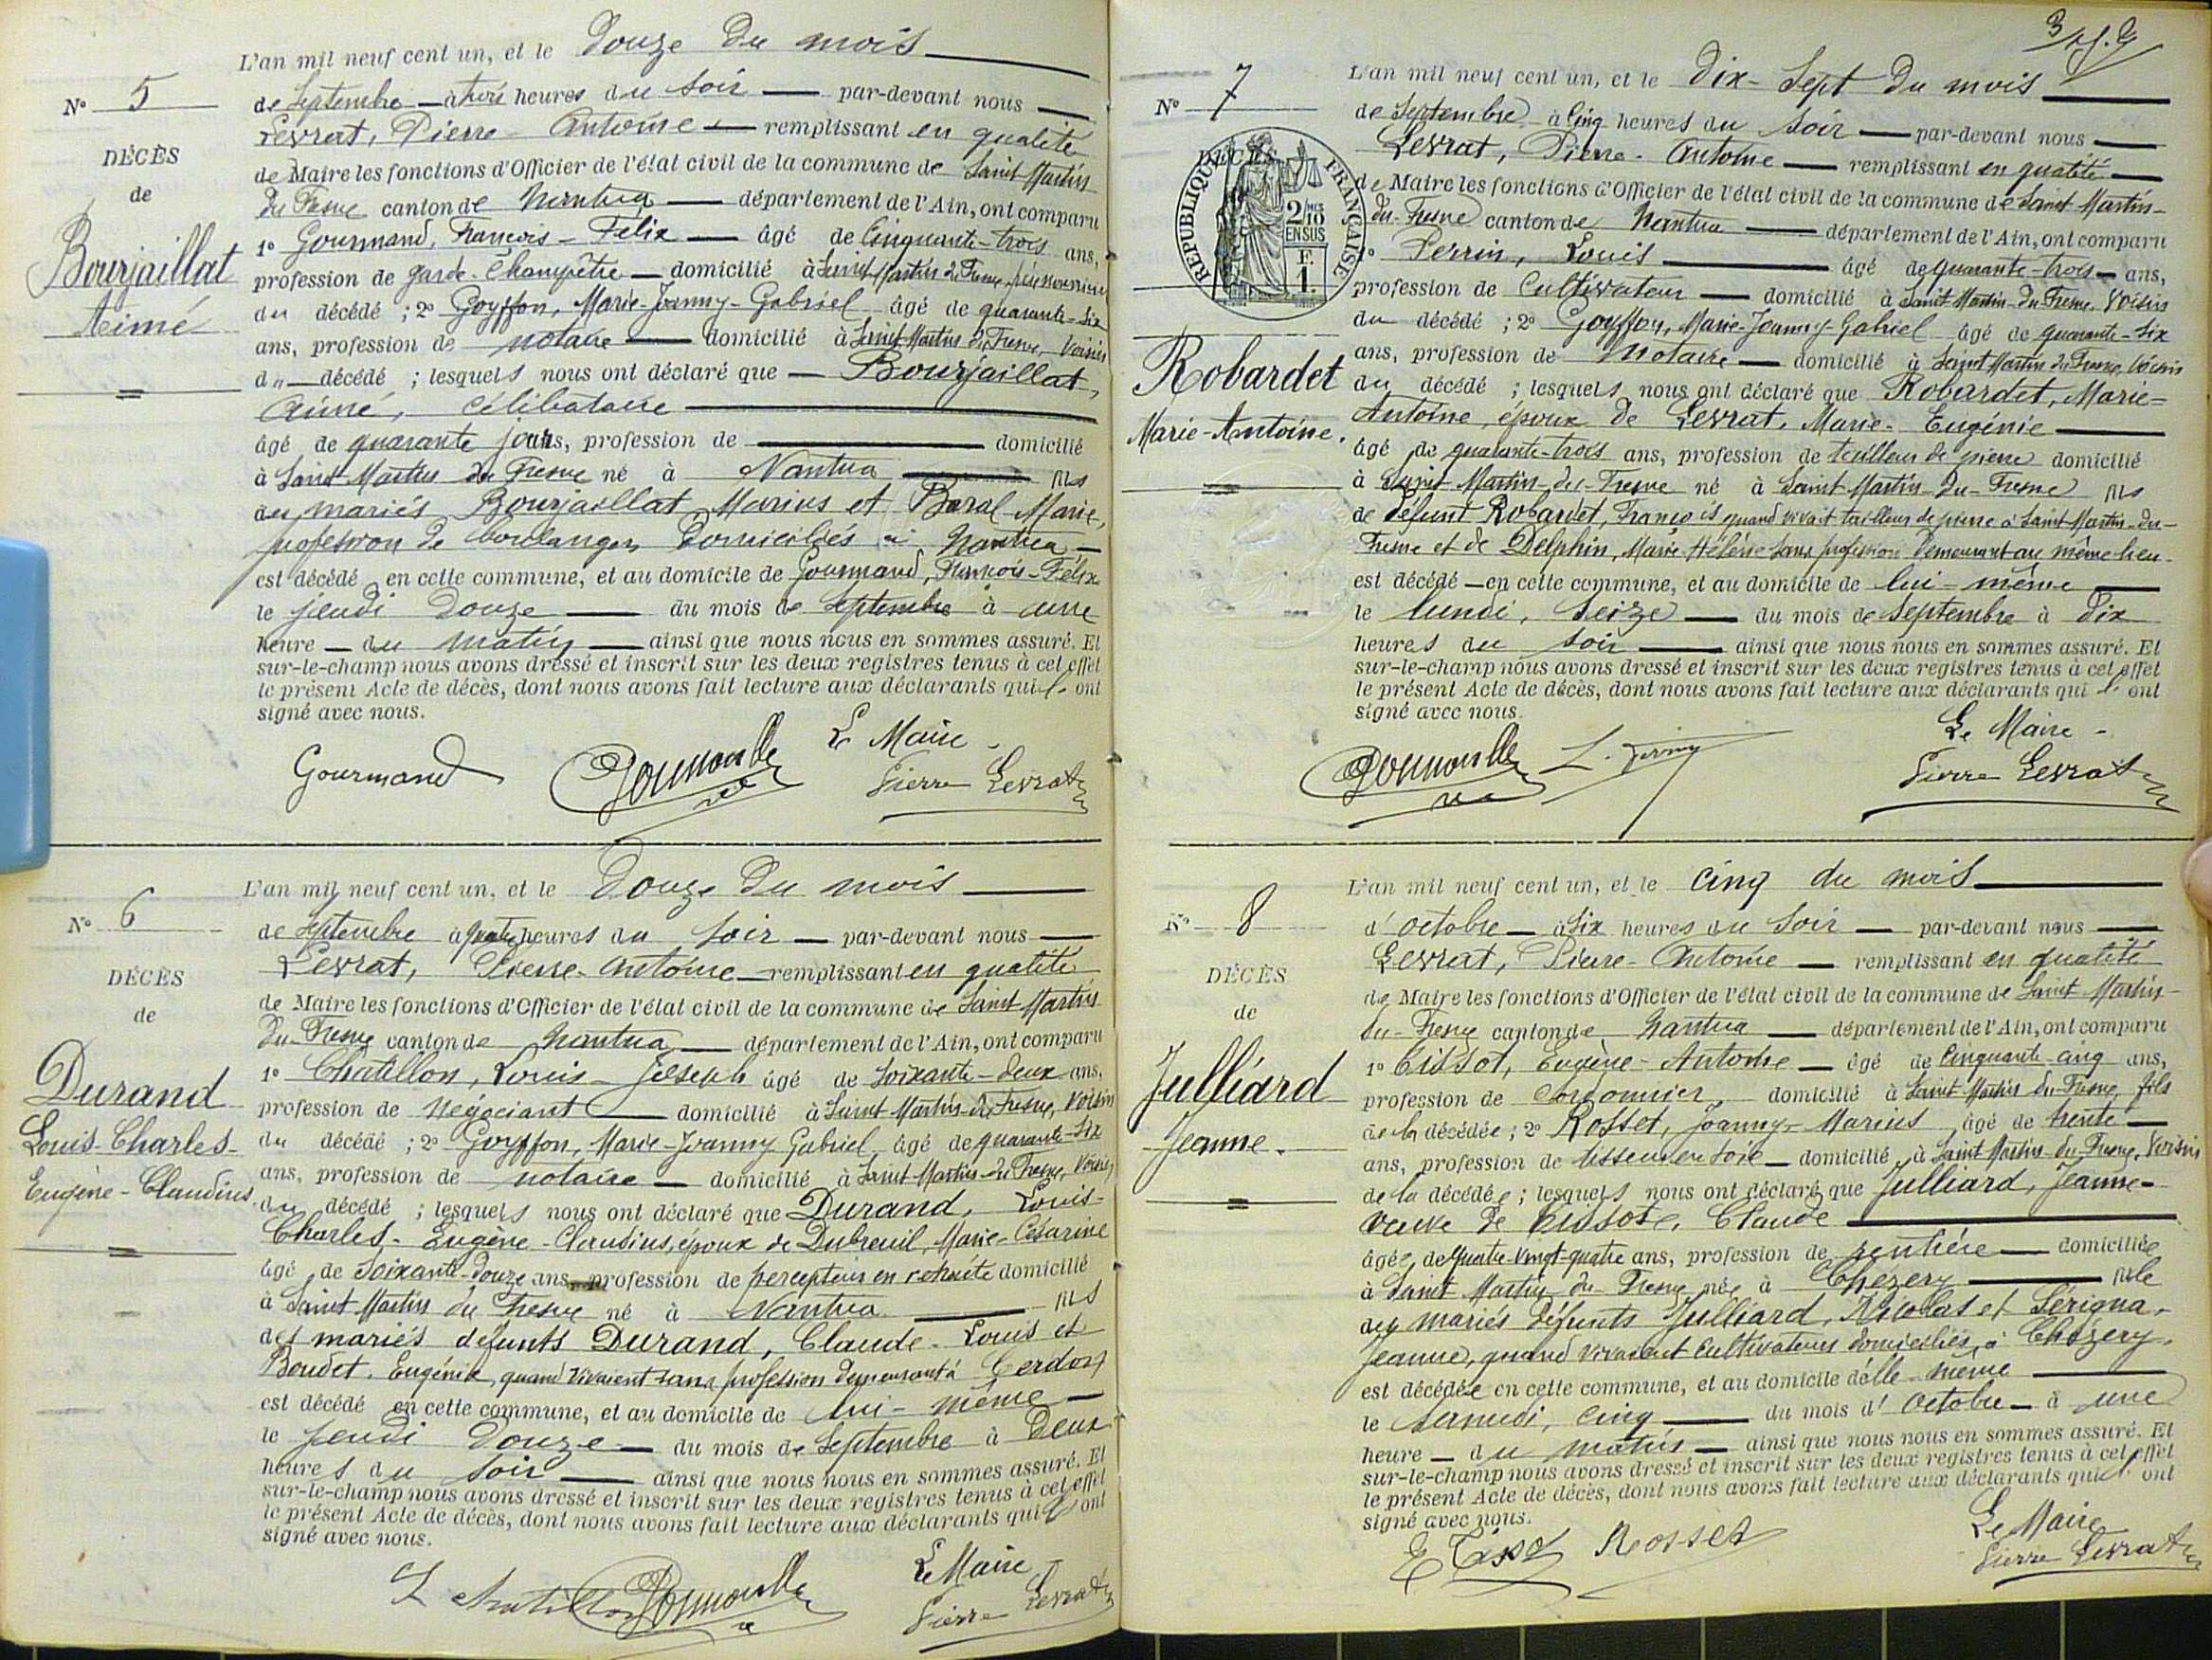 L'an mil neuf cent un, et le douze du mois
N° 5
de Septembre à trois heures du soir par-devant nous
Levrat, Pierre-Antoine remplissant en qualité
DÉCÈS
de Maire les fonctions d'Officier de l'état civil de la commune de Saint-Martin
de
du Fresne canton de Nantua département de l'Ain, ont comparu
1° Gourmand, François-Félix âgé de Cinquante-trois ans,
Bourjaillat
profession de garde-Champêtre domicilié à Saint Martin du Fresne, père nourricier
Aimé
du décédé ; 2° Goyffon, Marie-Joanny-Gabriel âgé de quarante-six
ans, profession de notaire domicilié à Saint-Martin du Fresne, Voisin
du décédé ; lesquels nous ont déclaré que Bourjaillat,
Aimé, célibataire
âgé de quarante jours, profession de domicilié
à Saint-Martin du Fresne né à Nantua fils
des mariés Bourjaillat Marius et Baral Marie,
profession de boulangers domiciliés à Nantua
est décédé en cette commune, et au domicile de Gourmand, François-Félix
le jeudi douze du mois de Septembre à une
heure du matin ainsi que nous nous en sommes assuré. Et
sur-le-champ nous avons dressé et inscrit sur les deux registres tenus à cet effet
le présent Acte de décès, dont nous avons fait lecture aux déclarants qui l'ont
signé avec nous.
Le Maire
Gourmand
Pierre Levrat
L'an mil neuf cent un, et le douze du mois
N° 6
de septembre à quatre heures du soir par-devant nous
Levrat, Pierre-Antoine remplissant en qualité
DÉCÈS
de Maire les fonctions d'Officier de l'état civil de la commune de Saint Martin
de
du Fresne canton de Nantua département de l'Ain, ont comparu
1° Chatillon, Louis-Joseph âgé de soixante-deux ans,
Durand
profession de négociant domicilié à Saint Martin-du Fresne, Voisin
Louis-Charles-
du décédé ; 2° Goyffon, Marie-Joanny Gabriel, âgé de quarante-six
Eugène-Claudius
ans, profession de notaire domicilié à Saint-Martin-du Fresne, Voisin
du décédé ; lesquels nous ont déclaré que Durand, Louis-
Charles-Eugène-Claudius, époux de Dubreuil, Marie-Césarine
âgé de soixante-douze ans profession de percepteur en retraite domicilié
à Saint Martin du Fresne né à Nantua fils
des mariés défunts Durand, Claude-Louis et
Boudet, Eugénie, quand vivaient sans profession demeurant à Cerdon
est décédé en cette commune, et au domicile de lui-même
le jeudi douze du mois de Septembre à Deux
heures du soir ainsi que nous nous en sommes assuré. Et
sur-le-champ nous avons dressé et inscrit sur les deux registres tenus à cet effet
le présent Acte de décès, dont nous avons fait lecture aux déclarants qui l'ont
signé avec nous.
Le Maire
L Chatillon
Pierre Levrat
3
L'an mil neuf cent un, et le dix-sept du mois
N° 7
de Septembre à Cinq heures du soir par-devant nous
Levrat, Pierre-Antoine remplissant en qualité
DÉCÈS
RÉPUBLIQUE FRANÇAISE
2/10 EN SUS
F. 1.
de Maire les fonctions d'Officier de l'état civil de la commune de Saint Martin-
du-Fresne canton de Nantua département de l'Ain, ont comparu
1° Perrin, Louis âgé de quarante-trois ans,
profession de Cultivateur domicilié à Saint-Martin-du Fresne, Voisin
du décédé ; 2° Goyffon, Marie-Joanny-Gabriel âgé de quarante-six
Robardet
ans, profession de Notaire domicilié à Saint Martin du Fresne, Voisin
du décédé ; lesquels nous ont déclaré que Robardet, Marie-
Marie-Antoine.
Antoine, époux de Levrat, Marie-Eugénie
âgé de quarante-trois ans, profession de tailleur de pierre domicilié
à Saint-Martin-du-Fresne né à Saint-Martin-du-Fresne fils
de défunt Robardet, François quand vivait tailleur de pierre à Saint-Martin-du-
Fresne et de Delphin, Marie-Hélène sans profession demeurant au même lieu
est décédé en cette commune, et au domicile de lui-même
le lundi, seize du mois de septembre à dix
heures du soir ainsi que nous nous en sommes assuré. Et
sur-le-champ nous avons dressé et inscrit sur les deux registres tenus à cet effet
le présent Acte de décès, dont nous avons fait lecture aux déclarants qui l'ont
signé avec nous.
Le Maire
Pierre Levrat
L'an mil neuf cent un, et le cinq du mois
N° 8
d'octobre à six heures du soir par-devant nous
Levrat, Pierre-Antoine remplissant en qualité
DÉCÈS
de Maire les fonctions d'Officier de l'état civil de la commune de Saint Martin-
de
du-Fresne canton de Nantua département de l'Ain, ont comparu
1° Tissot, Eugène-Antoine âgé de Cinquante-cinq ans,
Julliard
profession de Cordonnier, domicilié à Saint-Martin du-Fresne, fils
de la décédée ; 2° Rosset, Joanny-Marius âgé de trente
Jeanne.
ans, profession de tisseur en soie domicilié à Saint Martin-du-Fresne, Voisin
de la décédée ; lesquels nous ont déclaré que Julliard, Jeanne-
veuve de Tissot, Claude
âgée de quatre-vingt-quatre ans, profession de rentière domiciliée
à Saint Martin-du-Fresne née à Chézery fille
des mariés défunts Julliard, Nicolas et
Jeanne, quand vivaient cultivateurs domiciliés à Chézery,
est décédée en cette commune, et au domicile d'elle-même
le samedi, cinq du mois d'octobre à une
heure du matin ainsi que nous nous en sommes assuré. Et
sur-le-champ nous avons dressé et inscrit sur les deux registres tenus à cet effet
le présent Acte de décès, dont nous avons fait lecture aux déclarants qui l'ont
signé avec nous.
Le Maire
E Tissot Rosset
Pierre Levrat